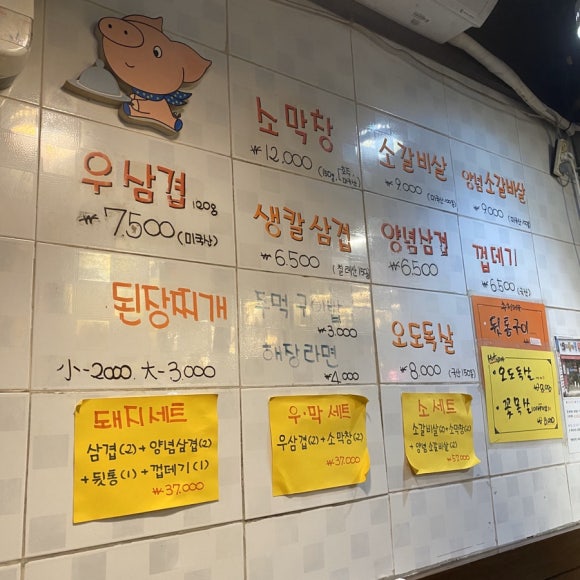 우삼겹 120g
₩7,500 (미국산)
소막창
₩12,000
소갈비살
₩9,000
양념소갈비살
₩9,000
생칼삼겹
₩6,500
양념삼겹
₩6,500
껍데기
₩6,500 (국산)
된장찌개
小-2000. 大-3,000
₩3,000
해장라면
₩4,000
오도독살
₩8,000 (국산 150g)
뒷통구이
•오도독살
•꽃목살
돼지세트
삼겹(2)+양념삼겹(2)
+뒷통(1)+껍데기(1)
₩37,000
우·막 세트
우삼겹(2)+소막창(2)
₩37,000
소 세트
소갈비살(2)+소막창(2)
+양념소갈비살(2)
₩57,000